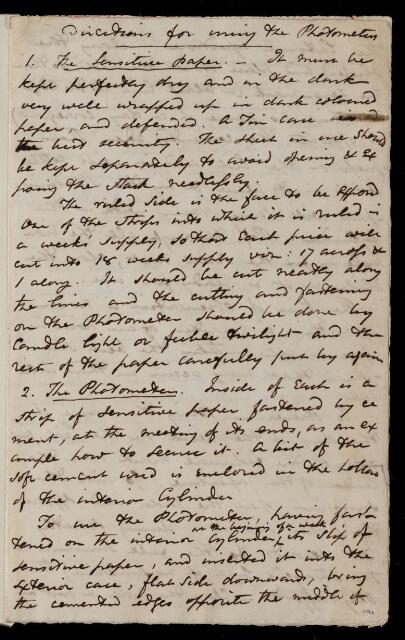 Directions for using the Photometers
1. The Sensitive paper. — It must be
kept perfectly dry and in the dark
very well wrapped up in dark coloured
paper, and defended. A Tin case
the best security. The sheet in use should
be kept separately to avoid opening & Ex
posing the stack needlessly.
The ruled side is the face to be Exposed
One of the strips into which it is ruled is
a week's supply, so that Each piece will
cut into 18 weeks supply viz: 17 across &
1 along. It should be cut neatly along
the lines and the cutting and fastening
on the Photometer should be done by
Candle light or feeble twilight and the
rest of the paper carefully put by again
2. The Photometer. Inside of Each is a
strip of sensitive paper fastened by ce
ment, at the meeting of its ends, as an Ex
ample how to secure it. A bit of the
soft cement used is enclosed in the hollow
of the interior Cylinder
To use the Photometer, having fast
on the beginning of a week
tened on the interior Cylinder, its slip of
sensitive paper, and inserted it into the
Exterior case, flat side downwards, bring
the cemented edges opposite the middle of